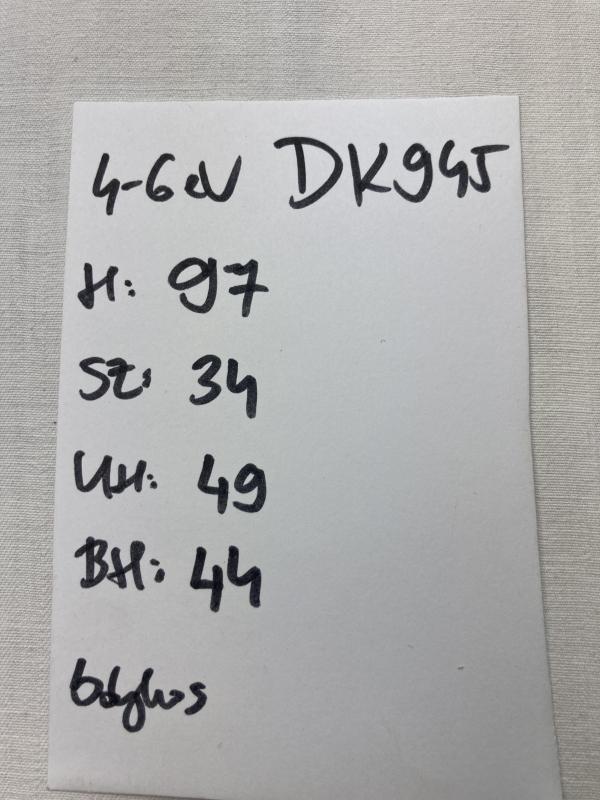 4-6 év DK945
H: 97
SZ: 34
UH: 49
BH: 44